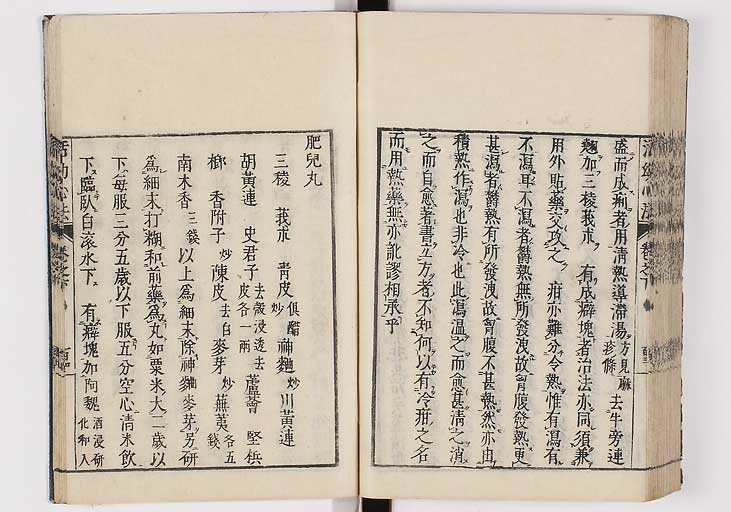 盛而成痢者用清熱導滯湯方見麻疹條去牛旁連
翹加三棱莪朮有成癖塊者治法亦同須兼
用外貼藥交攻之疳亦難分冷熱惟有瀉有
不瀉耳不瀉者鬱熱無所發洩故胷腹發熱更
甚瀉者鬱熱有所發洩故胷腹不甚熱然亦由
積熱作瀉也非冷也此瀉溫之而愈甚清之消
之而自愈著書立方者不知何以有冷疳之名
而用熱藥無亦訛謬相承乎
肥兒丸
三稜 莪朮 青皮俱醋炒 神麯炒 川黃連
胡黃連 史君子去殼浸透去皮各一兩 蘆薈 堅梹
榔 香附子炒 陳皮去白 麥芽炒 蕪荑各五錢
南木香三錢以上爲細末除神麯麥芽另研
爲細末打糊和前藥爲丸如粟米大一歲以
下每服三分五歲以下服五分空心清米飲
下臨臥白滾水下 有癖塊加阿魏酒浸研化和入
活幼心法 卷之下